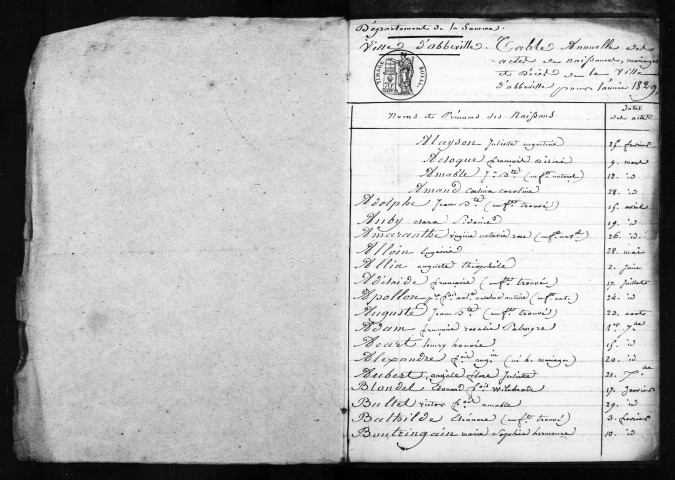 Département de la Somme.
Ville d'abbeville. Table Annuelle des
actes de Naissances, mariages
et Décès de la Ville
d'abbeville pour l'année 1829.
TIMBRE ROYAL
Noms et Prénoms des Naissans
Dates des actes
Alayson Juliette augustine 25. fevrier
Acloque françois désiré 9. mars
Amable J.n B.te (enf.t naturel) 12. id
Amand caroline 28. id
Adolphe Jean B.te (enf.t trouvé) 15. avril
Auby clara 19. id
Amaranthe virginie octavie rose (enf.t nat.l) 26. id
Alloin Eugénie 28. mai
Allin auguste théophile 2. Juin
Adélaïde françoise (enf.t trouvé) 17. Juillet
Apollon (enf.t nat.) 24. id
Auguste Jean B.te (enf.t trouvé) 23. aout
Adam françoise rosalie 1er 7bre
Acart henry honoré 15. id
Alexandre (né h. mariage) 20. id
Aubert angèle flore Juliette 21.
Blondel Edouard 17. Janvier
Bultel victor amable 29. id
Bathilde Eléonore (enf.t trouvé) 3. fevrier
Boutringain marie Sophie hermance 10. id